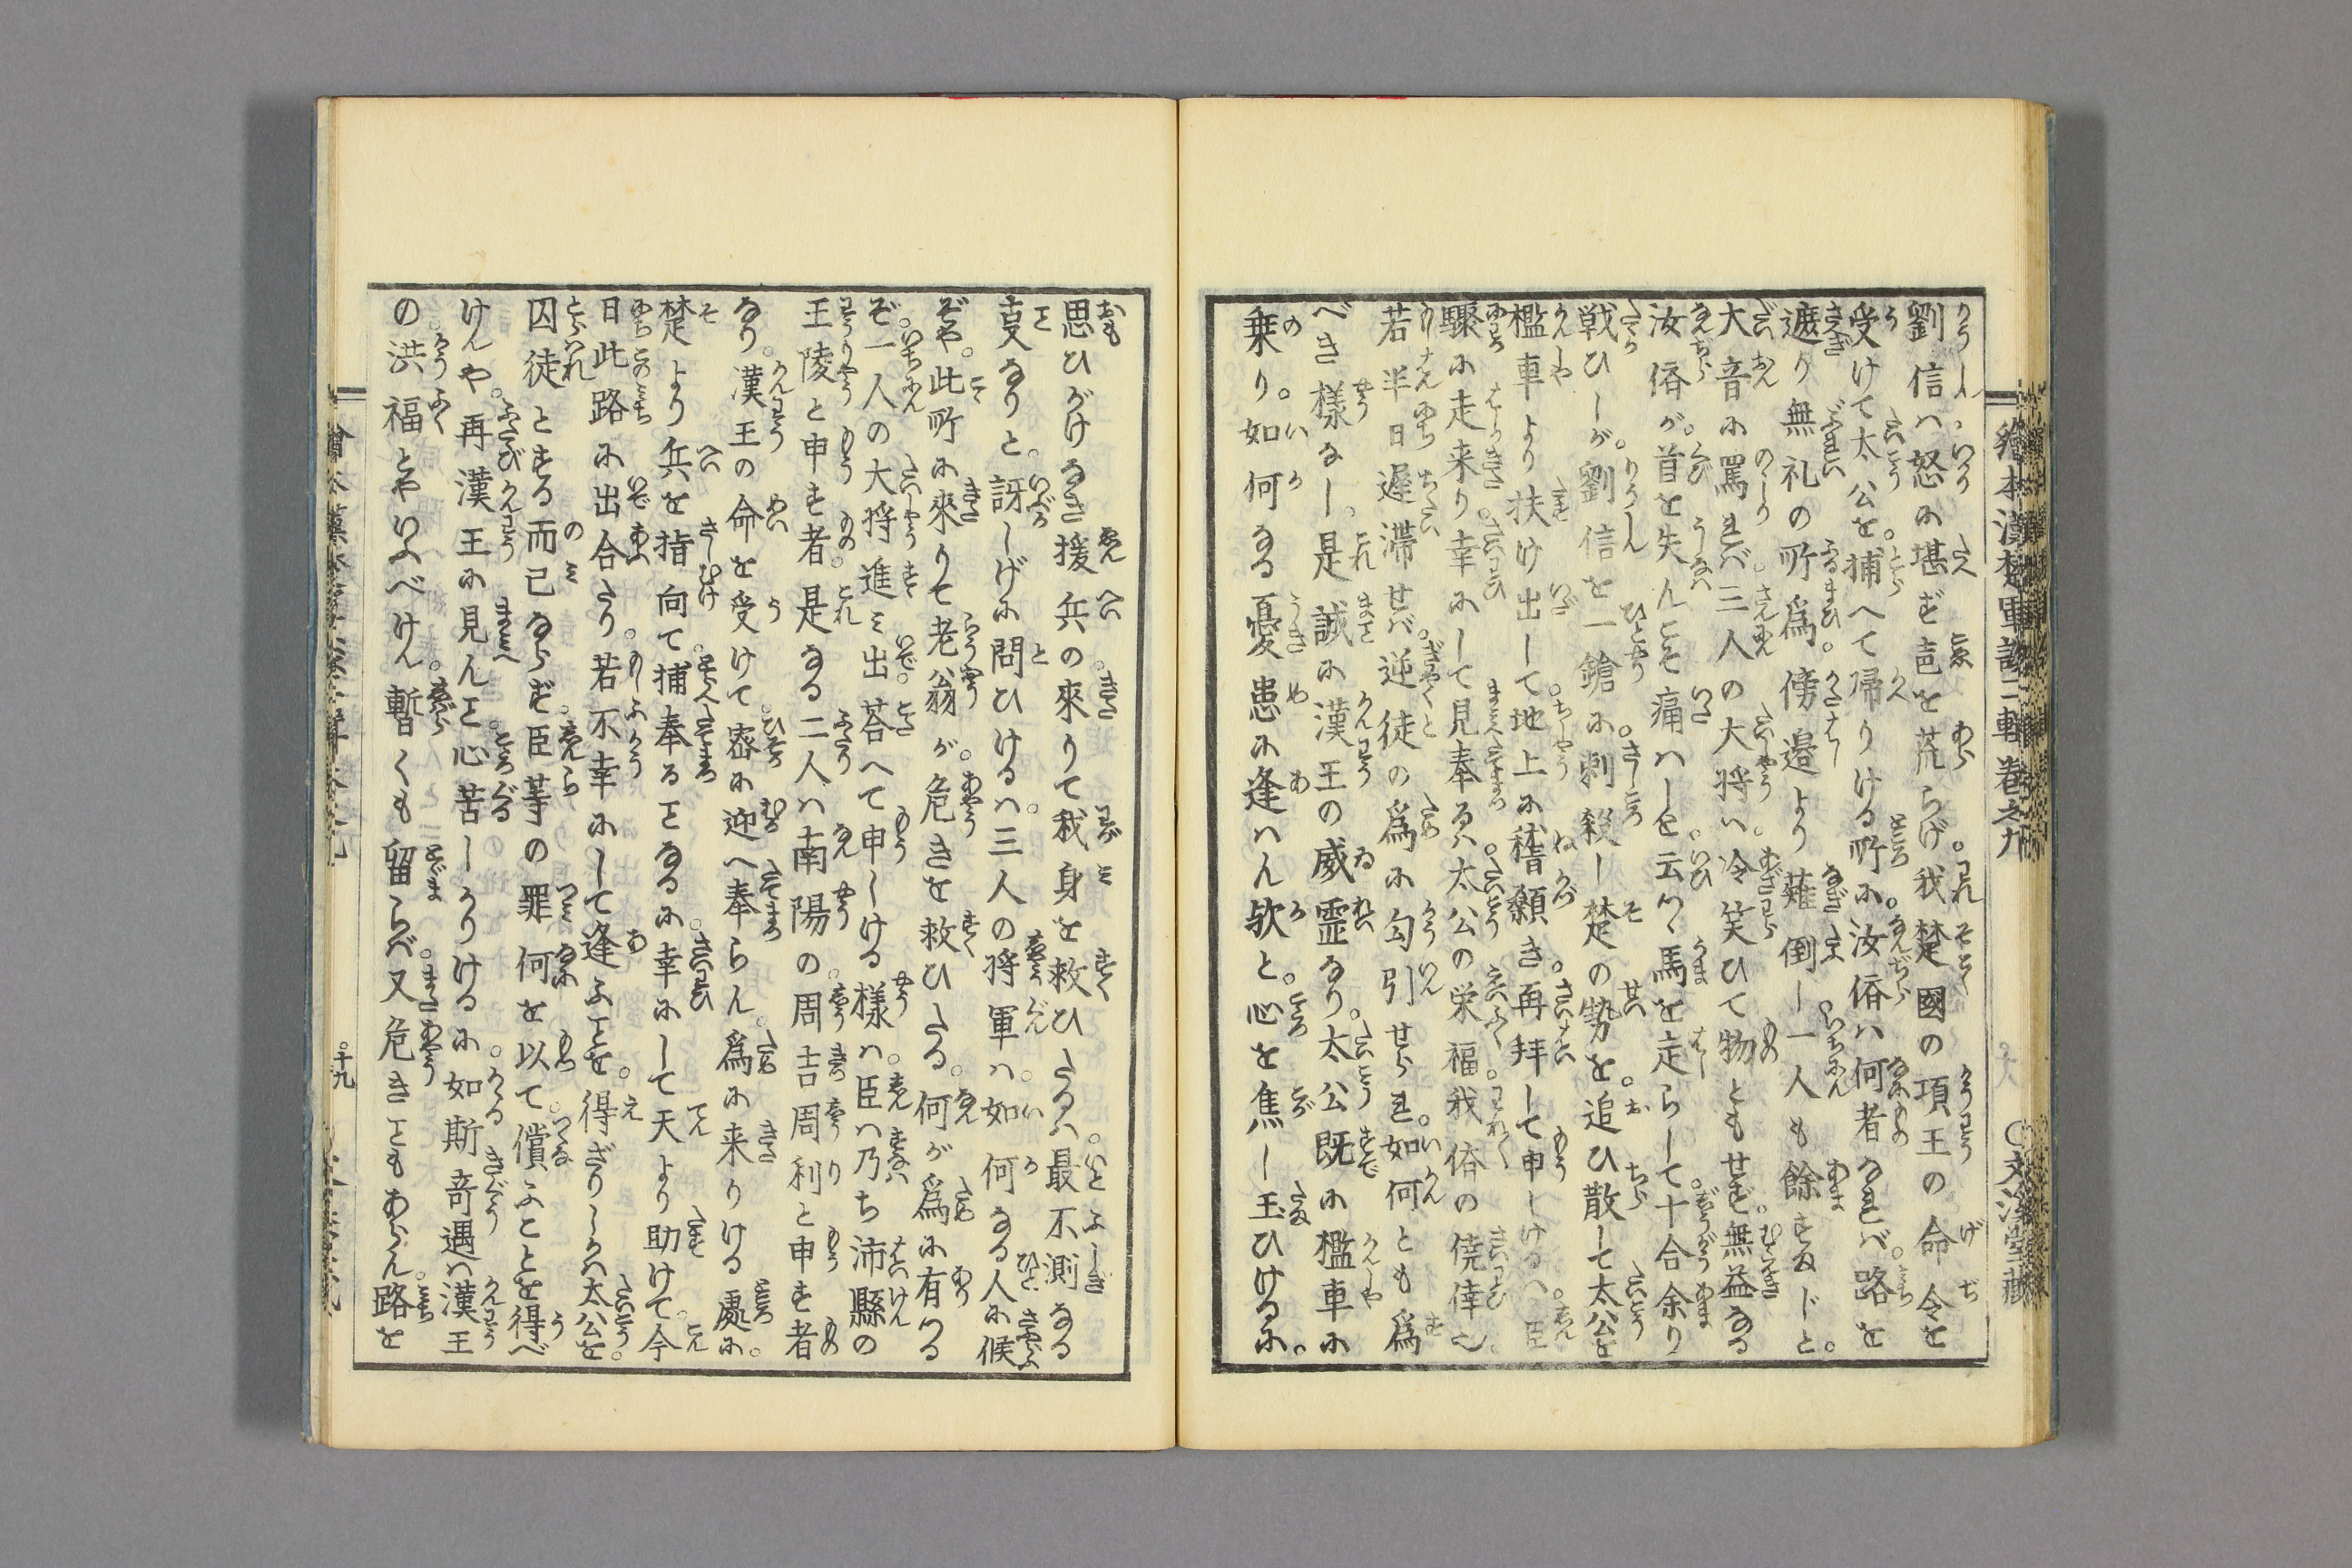 繪本漢楚軍談二輯卷之九
劉信ハ怒に堪ず声を荒らげ我楚國の項王の命令を
受けて太公を捕へて帰りける所に汝儕ハ何者なれバ路を
遮り無礼の所爲傍邉より薙倒し一人も餘すまじと
大音に罵れバ三人の大将ハ冷笑ひて物ともせず無益なる
汝儕が首を失んこそ痛ハしと云つゝ馬を走らして十合余り
戦ひしが劉信を一鎗に刺殺し楚の勢を追ひ散して太公を
檻車より扶け出して地上に稽顙き再拝して申しけるハ臣
驟に走来り幸にして見奉るハ太公の栄福我儕の僥倖也
若半日遅滞せバ逆徒の爲に勾引せられ如何とも爲
べき様なし是誠に漢王の威霊なり太公既に檻車に
乗り如何なる憂患に逢ハん欤と心を焦し玉ひけるに
思ひがけなき援兵の來りて我身を救ひたるハ最不測なる
叓なりと訝しげに問ひけるハ三人の将軍ハ如何なる人に候
ぞや此所に來りて老翁が危きを救ひたる何が爲に有つる
ぞ一人の大将進ミ出荅へて申しける様ハ臣ハ乃ち沛縣の
王陵と申す者是なる二人ハ南陽の周吉周利と申す者
なり漢王の命を受けて密に迎へ奉らん爲に来りける處に
楚より兵を指向て捕奉るとなるに幸にして天より助けて今
日此路に出合たり若不幸にして逢ふことを得ざりしかハ太公を
囚徒とする而已ならず臣等の罪何を以て償ふことを得べ
けんや再漢王に見んと心苦しかりけるに如斯竒遇ハ漢王
の洪福とやいふべけん暫くも留らバ又危きこともあらん路を
十九